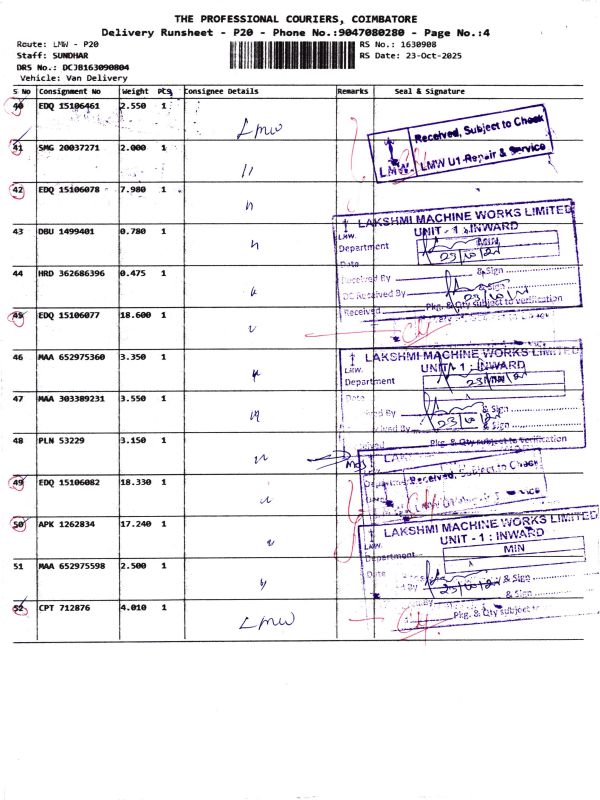 THE PROFESSIONAL COURIERS, COIMBATORE
Delivery Runsheet - P20 - Phone No.:9047080280 - Page No.:4
Route: LMW - P20
RS No.: 1630908
Staff: SUNDHAR
RS Date: 23-Oct-2025
DRS No.: DCJB163090804
Vehicle: Van Delivery
S No Consignment No Weight PCS Consignee Details Remarks Seal & Signature
40 EDQ 15106461 2.550 1 LMW
Received, Subject to Check
LMW U1 Repair & Service
LMW.
41 SMG 20037271 2.000 1 "
42 EDQ 15106078 7.980 1 "
LAKSHMI MACHINE WORKS LIMITED
UNIT - 1 : INWARD
LMW.
43 DBU 1499401 0.780 1 "
Department MIN
Date
44 HRD 362686396 0.475 1 "
Received By & Sign
DC Received By & Sign
Received Pkg. & Qty subject to verification
45 EDQ 15106077 18.600 1 "
46 MAA 652975360 3.350 1 "
LAKSHMI MACHINE WORKS LIMITED
UNIT - 1 : INWARD
LMW.
Department MIN
Date
47 MAA 303389231 3.550 1 "
& Sign
& Sign
48 PLN 53229 3.150 1 "
Pkg. & Qty subject to verification
49 EDQ 15106082 18.330 1 "
Received, Subject to Check
50 APK 1262834 17.240 1 "
LAKSHMI MACHINE WORKS LIMITED
UNIT - 1 : INWARD
LMW.
Department MIN
Date
51 MAA 652975598 2.500 1 "
& Sign
& Sign
52 CPT 712876 4.010 1 LMW
Pkg. & Qty subject to